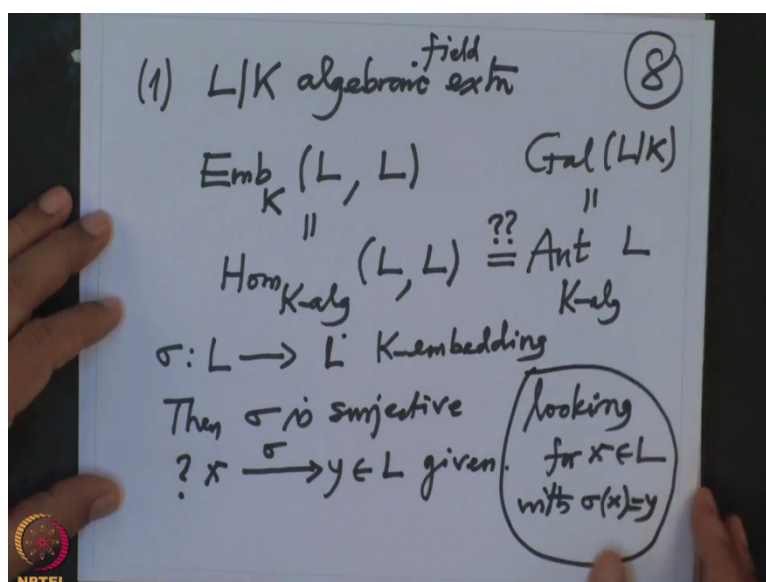 (1) L|K algebraic field extn
8
Emb_K (L, L) Gal(L|K)
|| ||
Hom_{K-alg} (L, L) ≟? Aut_{K-alg} L
σ: L → L K-embedding
Then σ is surjective
? x —σ→ y ∈ L given.
looking
for x ∈ L
with σ(x)=y
NPTEL